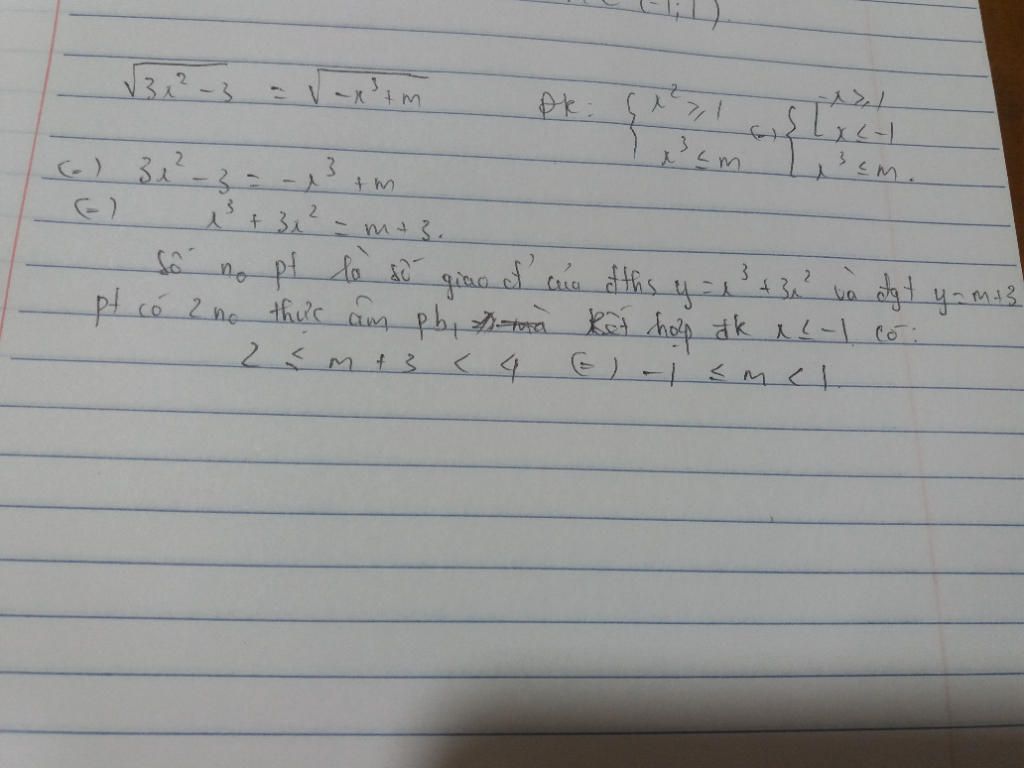 (-1; 1).
√(3x² - 3) = √(-x³ + m) Đk: { x² ≥ 1 ; x³ ≤ m (=) { [ x ≥ 1 ; x ≤ -1 ; x³ ≤ m.
(=) 3x² - 3 = -x³ + m
(=) x³ + 3x² = m + 3.
Số no pt là số giao đ' của đths y = x³ + 3x² và đgt y = m+3
pt có 2 no thực âm pb, Kết hợp đk x ≤ -1 có:
2 ≤ m + 3 < 4 (=) -1 ≤ m < 1.